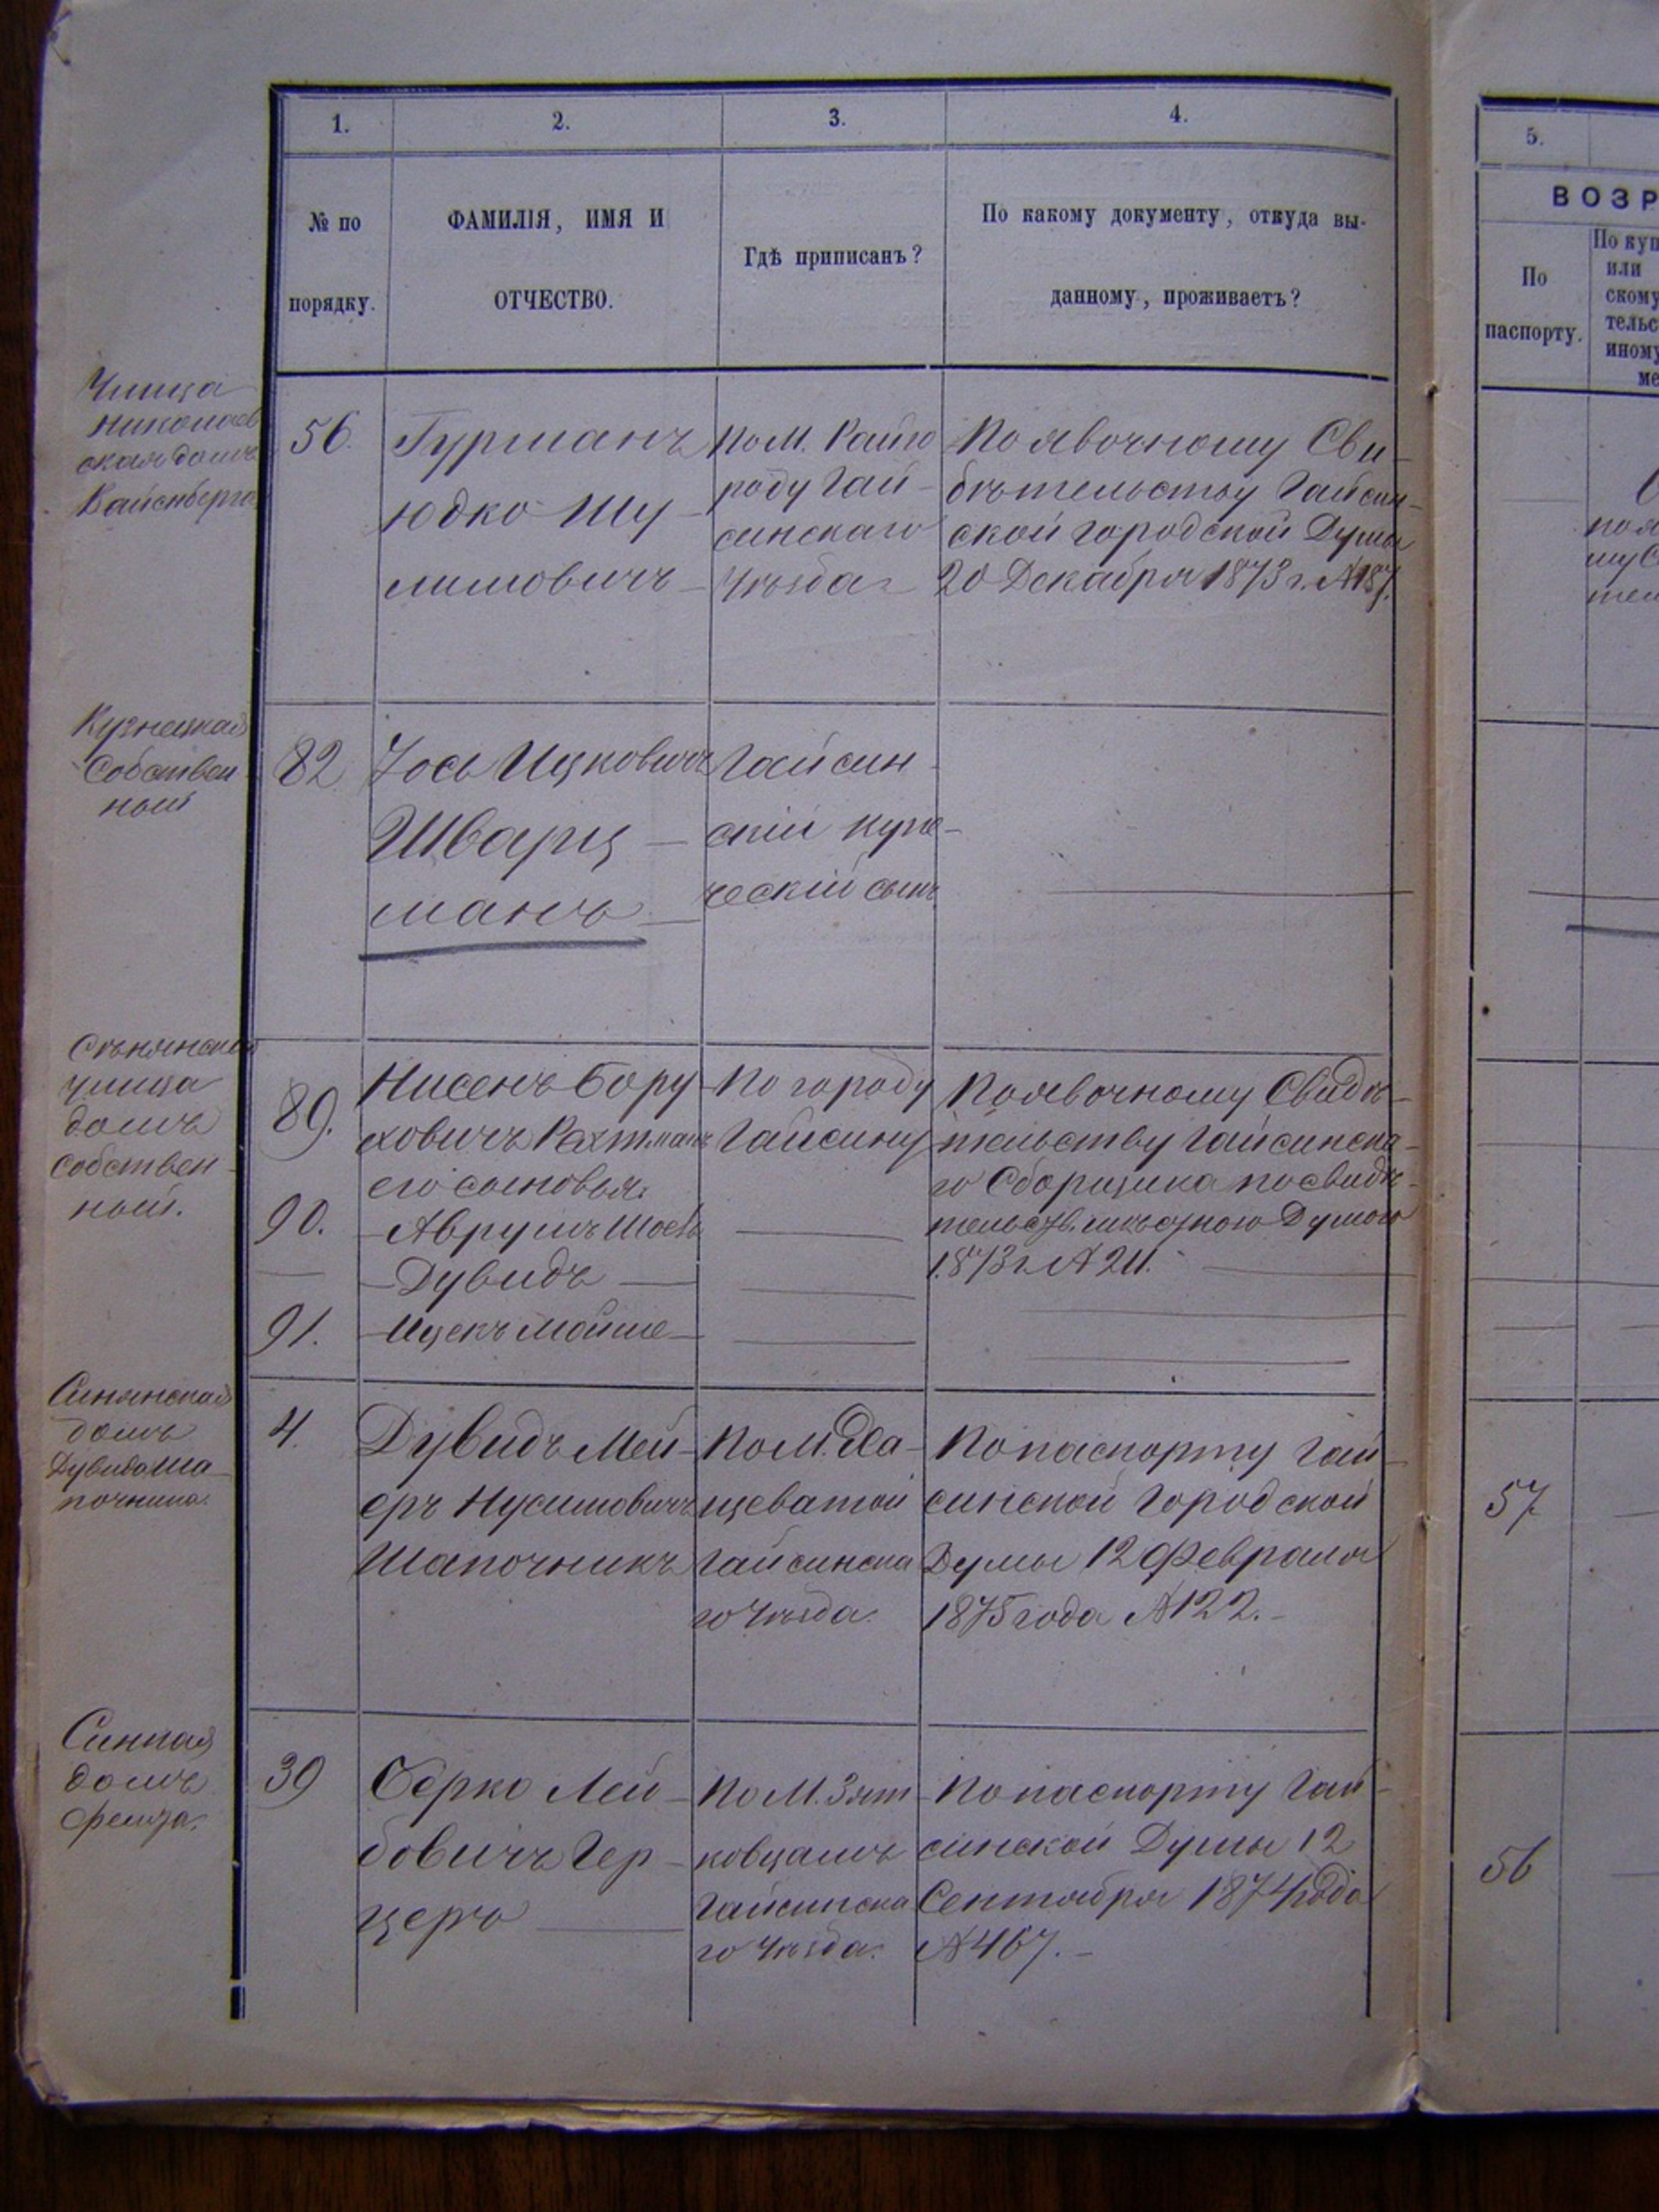 1.
2.
3.
4.
№ по
порядку.
ФАМИЛІЯ, ИМЯ И
ОТЧЕСТВО.
Гдѣ приписанъ?
По какому документу, откуда вы-
данному, проживаетъ?
Улица
Николаев
ская домъ
Вайсберга
56.
Гурманъ
Юдко Шу-
лимовичъ
По М. Райго
роду Гай-
синскаго
Уѣзда
По явочному Сви-
дѣтельству Гайсин-
ской городской Думы
20 Декабря 1873 г. №187.
Кузнецкая
Собствен-
ный
82
Іось Ицковичъ
Шварц-
манъ
Гайсин-
скій купе-
ческій сынъ
улица
домъ
собствен-
ный.
89.
Нисенъ Бору-
ховичъ Рахтманъ
его сыновья:
90.
Аврумъ
Дувидъ
91.
Ицекъ Мойше
По городу
Гайсину
По явочному Свидѣ-
тельству Гайсинска-
го Сборщика по свидѣ-
Думою
1873 г. №
домъ
Дувида Ша-
почника.
4.
Дувидъ Мей-
еръ Нусимовичъ
Шапочникъ
По М. Ха-
щеватой
Гайсинска
го Уѣзда.
По паспорту Гай-
синской Городской
Думы 12 Февраля
1875 года №122.-
Сѣнная
домъ
39
Берко Лей-
бовичъ Гер-
церъ
По М. Зят-
ковцамъ
Гайсинска
го Уѣзда.
По паспорту Гай-
синской Думы 12
Сентября 1874 года
№467.-
5.
ВОЗР
По
паспорту.
По куп
или
скому
тельс
иному
ме
поя
шу С
тел
57
56